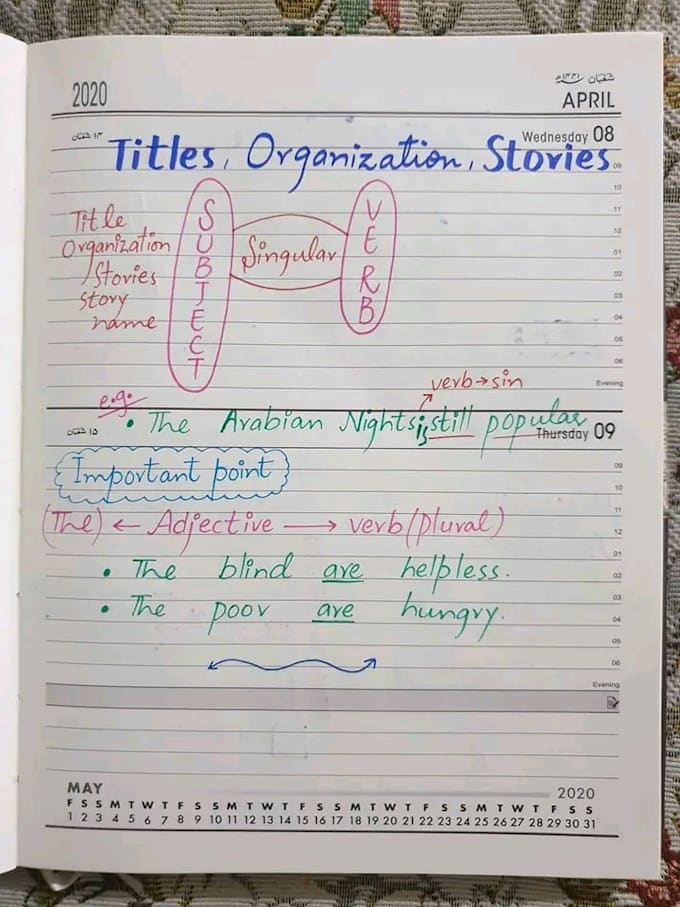 2020
شعبان ۱۴۴۱ھ
APRIL
۱۴ شعبان
Wednesday 08
Titles, Organization, Stories
Title
Organization
/Stories
story
name
SUBJECT
Singular
VERB
09
10
11
12
01
02
03
04
05
06
Evening
verb→sin
e.g.
• The Arabian Nights is still popular
۱۵ شعبان
Thursday 09
Important point
(The) ← Adjective → verb (plural)
• The blind are helpless.
• The poor are hungry.
09
10
11
12
01
02
03
04
05
06
Evening
MAY 2020
F S S M T W T F S S M T W T F S S M T W T F S S M T W T F S S
1 2 3 4 5 6 7 8 9 10 11 12 13 14 15 16 17 18 19 20 21 22 23 24 25 26 27 28 29 30 31